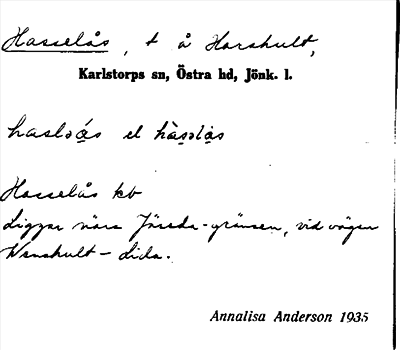 Hasselås, t å Horshult,
Karlstorps sn, Östra hd, Jönk. l.
haslə̀ås el hàsəlås
Hasselås kb
Ligger nära Järeda-gränsen, vid vägen
Wenshult – Lida.
Annalisa Anderson 1935